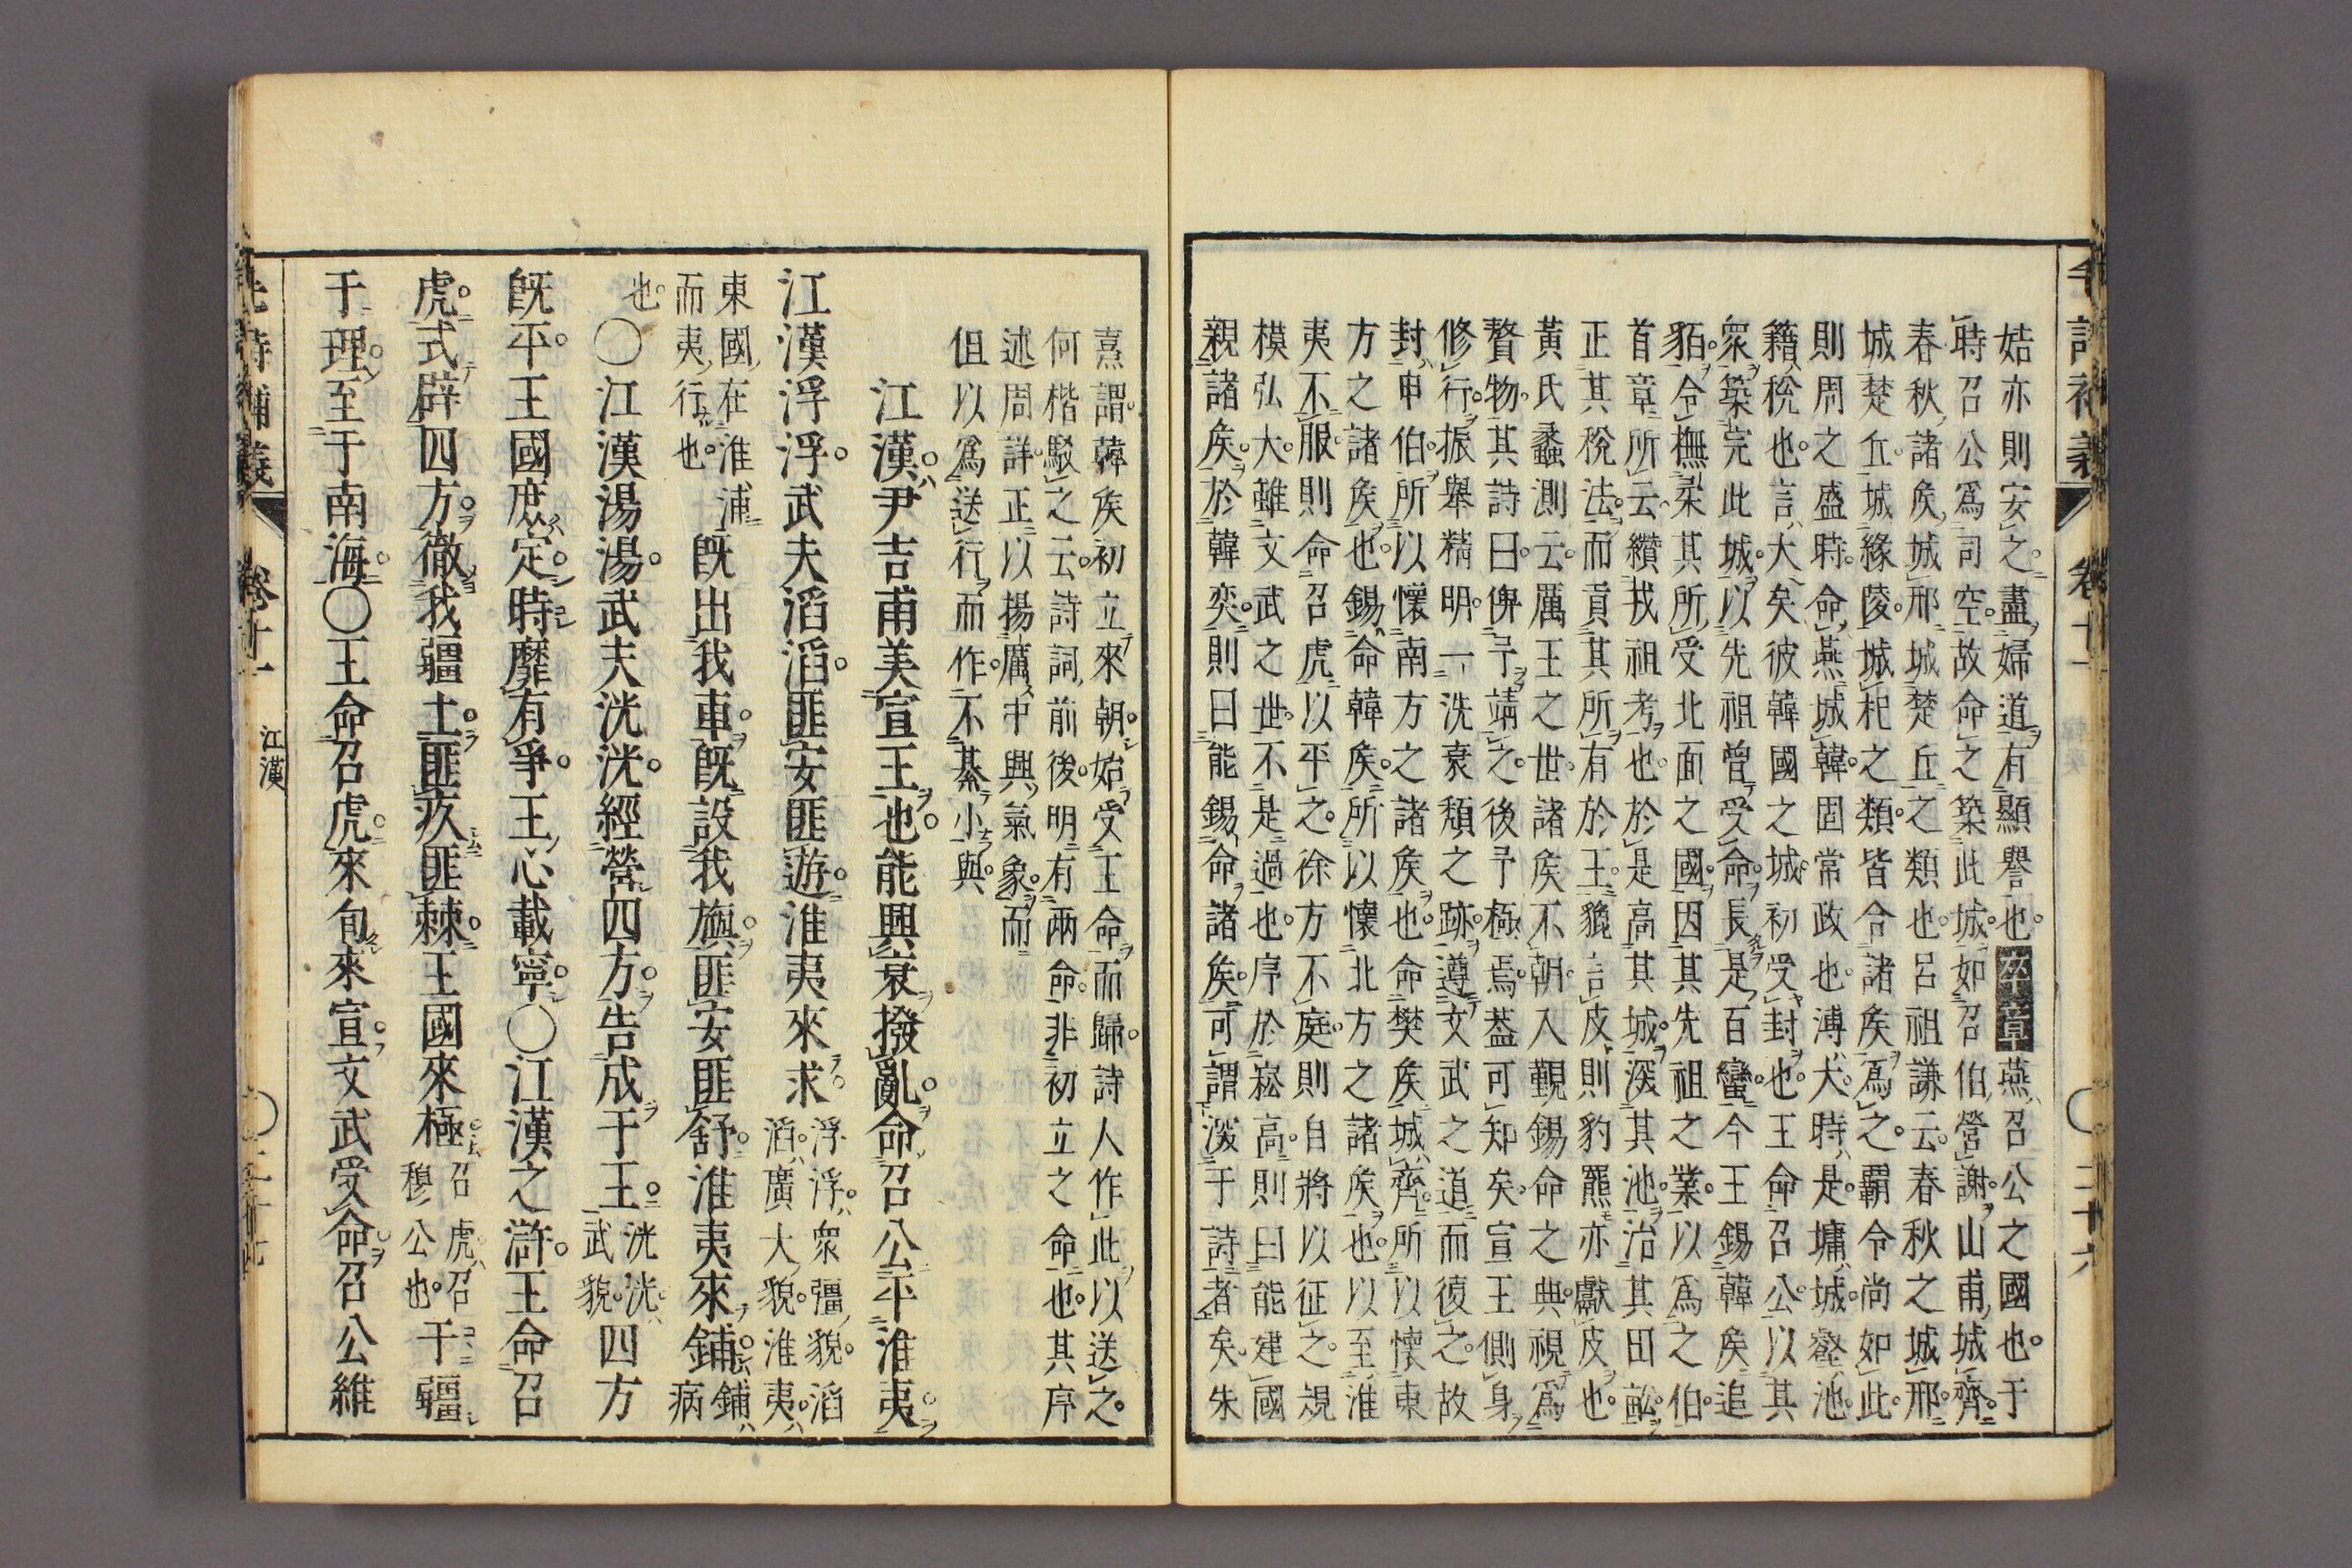 姞亦則安之盡婦道有顯譽也卒章燕召公之國也于
時召公爲司空故命之築此城如召伯營謝山甫城齊
春秋諸矦城邢城楚丘之類也呂祖謙云春秋之城邢
城楚丘城緣陵城杞之類皆合諸矦爲之霸令尚如此
則周之盛時命燕城韓固常政也溥大時是墉城壑池
籍稅也言大矣彼韓國之城初受封也王命召公以其
衆築完此城以先祖曾受命長是百蠻今王錫韓矦追
貊令撫柔其所受北面之國因其先祖之業以爲之伯
首章所云纘我祖考也於是高其城深其池治其田畝
正其稅法而貢其所有於王貔言皮則豹羆亦獻皮也
黃氏蠡測云厲王之世諸矦不朝入覲錫命之典視爲
贅物其詩曰俾予靖之後予極焉葢可知矣宣王側身
修行振舉精明一洗衰頹之跡遵文武之道而復之故
封申伯所以懷南方之諸矦也命樊矦城齊所以懷東
方之諸矦也錫命韓矦所以懷北方之諸矦也以至淮
夷不服則命召虎以平之徐方不庭則自將以征之規
模弘大雖文武之世不是過也序於崧高則曰能建國
親諸矦於韓奕則曰能錫命諸矦可謂深于詩者矣朱
熹謂韓矦初立來朝始受王命而歸詩人作此以送之
何楷駁之云詩詞前後明有兩命非初立之命也其序
述周詳正以揚厲中興氣象而
但以爲送行而作不綦小與
江漢尹吉甫美宣王也能興衰撥亂命召公平淮夷
江漢浮浮武夫滔滔匪安匪遊淮夷來求浮浮衆彊貌滔
滔廣大貌淮夷
東國在淮浦
而夷行也既出我車既設我旟匪安匪舒淮夷來鋪鋪病
也〇江漢湯湯武夫洸洸經營四方告成于王洸洸武貌四方
既平王國庶定時靡有爭王心載寧〇江漢之滸王命召
虎式辟四方徹我疆土匪疚匪棘王國來極召虎召穆公也于疆
于理至于南海〇王命召虎來旬來宣文武受命召公維
江漢